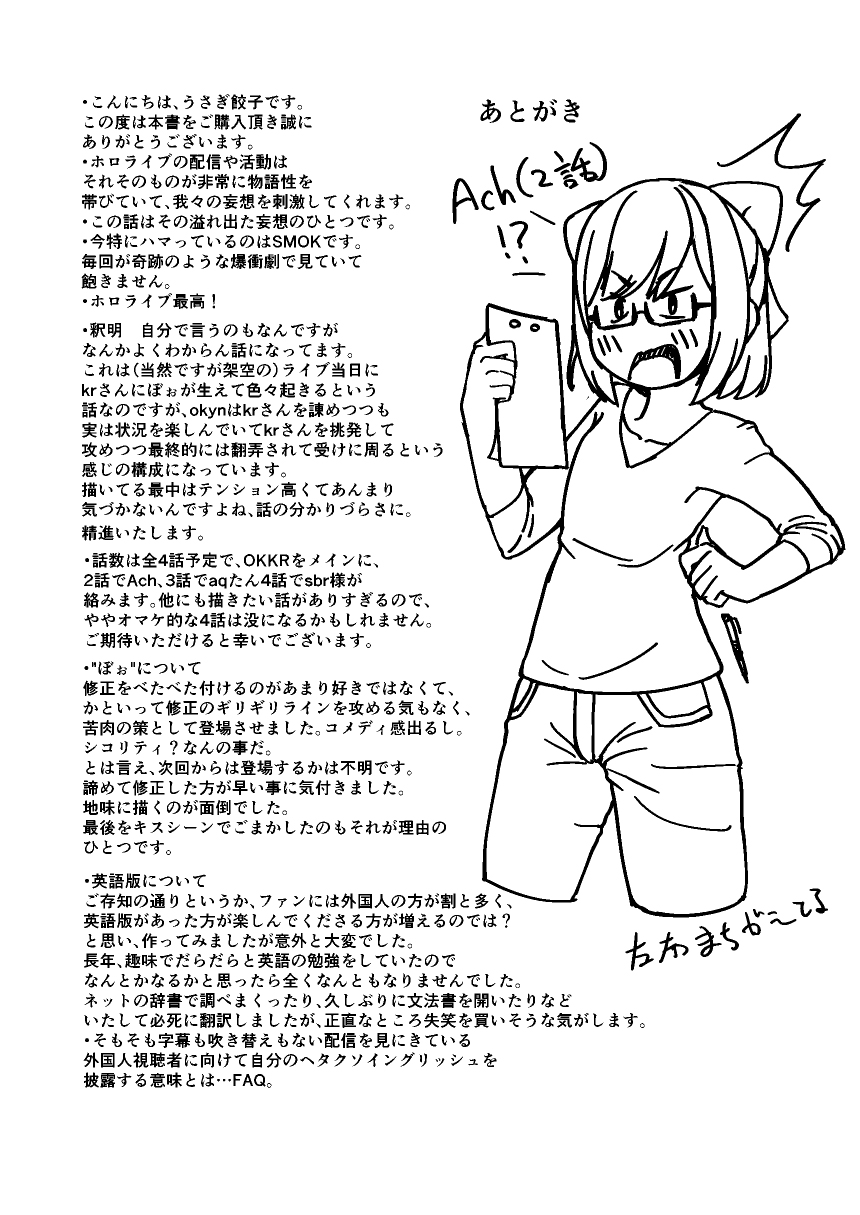 あとがき
・こんにちは、うさぎ餃子です。
この度は本書をご購入頂き誠に
ありがとうございます。
・ホロライブの配信や活動は
それそのものが非常に物語性を
帯びていて、我々の妄想を刺激してくれます。
・この話はその溢れ出た妄想のひとつです。
・今特にハマっているのはSMOKです。
毎回が奇跡のような爆衝劇で見ていて
飽きません。
・ホロライブ最高！
・釈明　自分で言うのもなんですが
なんかよくわからん話になってます。
これは(当然ですが架空の)ライブ当日に
krさんにぽぉが生えて色々起きるという
話なのですが、okynはkrさんを諫めつつも
実は状況を楽しんでいてkrさんを挑発して
攻めつつ最終的には翻弄されて受けに周るという
感じの構成になっています。
描いてる最中はテンション高くてあんまり
気づかないんですよね、話の分かりづらさに。
精進いたします。
・話数は全4話予定で、OKKRをメインに、
2話でAch、3話でaqたん4話でsbr様が
絡みます。他にも描きたい話がありすぎるので、
ややオマケ的な4話は没になるかもしれません。
ご期待いただけると幸いでございます。
・"ぽぉ"について
修正をべたべた付けるのがあまり好きではなくて、
かといって修正のギリギリラインを攻める気もなく、
苦肉の策として登場させました。コメディ感出るし。
シコリティ？なんの事だ。
とは言え、次回からは登場するかは不明です。
諦めて修正した方が早い事に気付きました。
地味に描くのが面倒でした。
最後をキスシーンでごまかしたのもそれが理由の
ひとつです。
・英語版について
ご存知の通りというか、ファンには外国人の方が割と多く、
英語版があった方が楽しんでくださる方が増えるのでは？
と思い、作ってみましたが意外と大変でした。
長年、趣味でだらだらと英語の勉強をしていたので
なんとかなるかと思ったら全くなんともなりませんでした。
ネットの辞書で調べまくったり、久しぶりに文法書を開いたりなど
いたして必死に翻訳しましたが、正直なところ失笑を買いそうな気がします。
・そもそも字幕も吹き替えもない配信を見にきている
外国人視聴者に向けて自分のヘタクソイングリッシュを
披露する意味とは…FAQ。
Ach(2話)
!?
左右まちがえてる